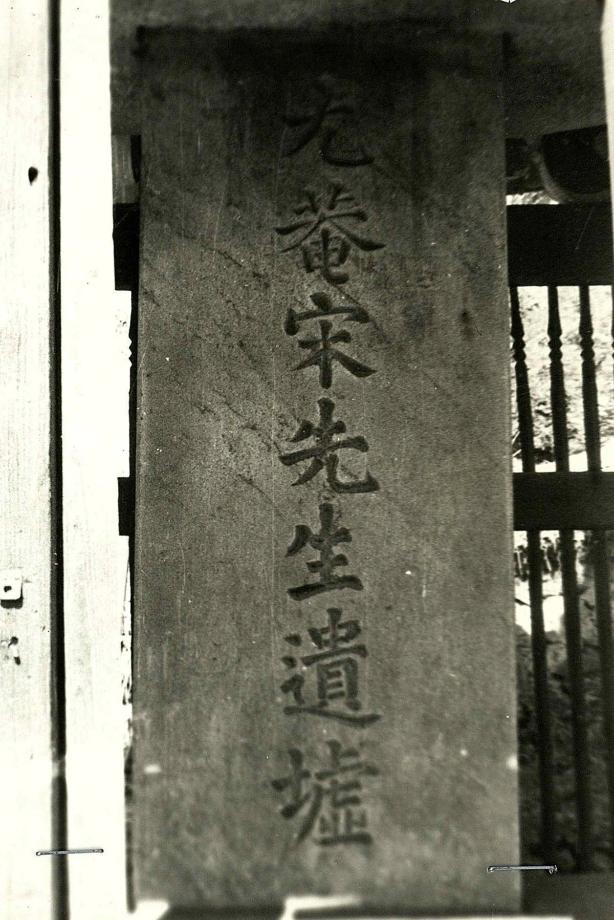 尤菴宋先生遺墟